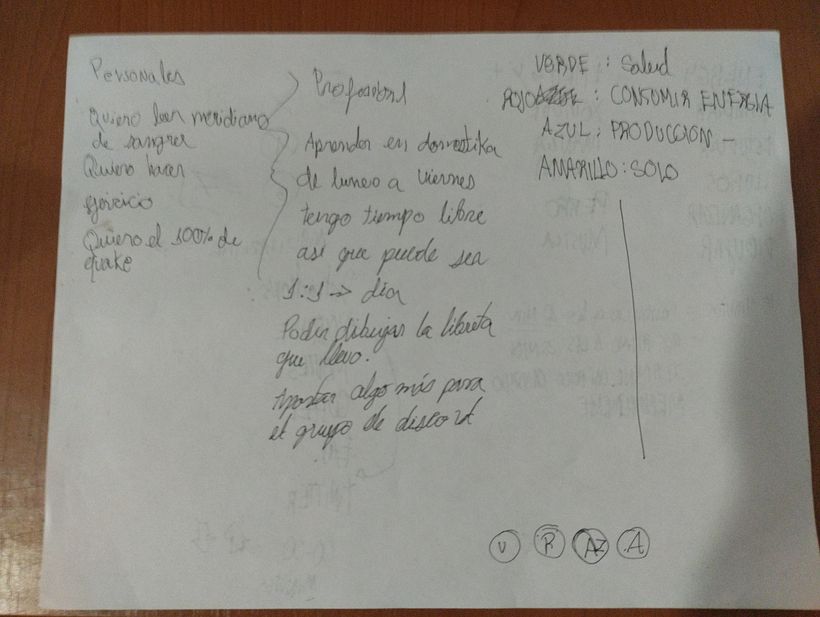 Personales
Quiero leer meridiano
de sangre
Quiero hacer
ejercicio
Quiero el 100% de
quake
Profesional
Aprender en domestika
de lunes a viernes
tengo tiempo libre
así que puede ser
1:1 -> día
Poder dibujar la libreta
que llevo.
Aportar algo más para
el grupo de discord
VERDE : Salud
ROJO : CONSUMIR ENERGIA
AZUL : PRODUCCION -
AMARILLO : SOLO
V R AZ A